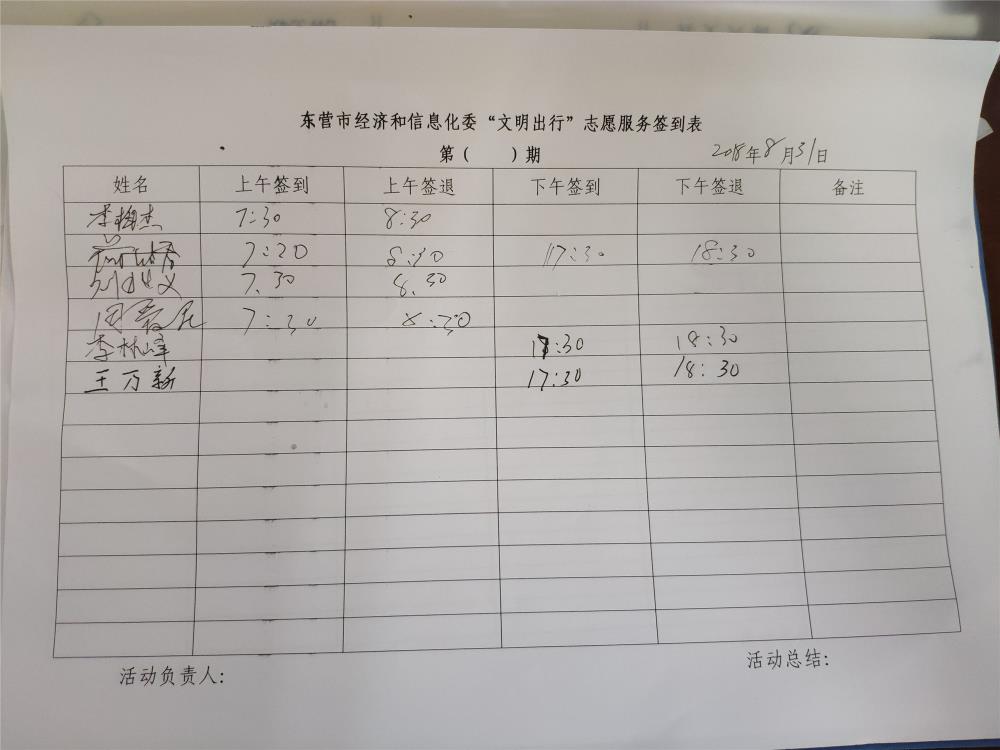 东营市经济和信息化委“文明出行”志愿服务签到表
第（ ）期 2018年8月31日
姓名 上午签到 上午签退 下午签到 下午签退 备注
李梅杰 7:30 8:30
7:20 8:30 17:30 18:30
7.30 8.30
7:30 8:30
李林峰 17:30 18:30
王万新 17:30 18:30
活动负责人： 活动总结：